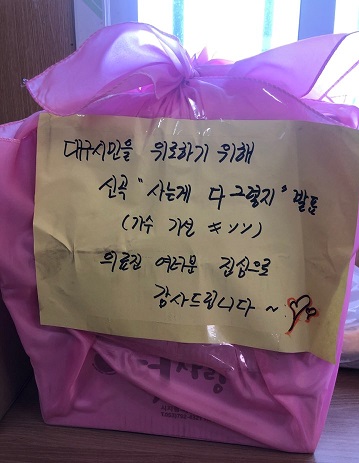 대구시민을 위로하기 위해
신곡 "사는게 다 그렇지" 발표
(가수
의료진 여러분 진심으로
감사드립니다 ~
사랑